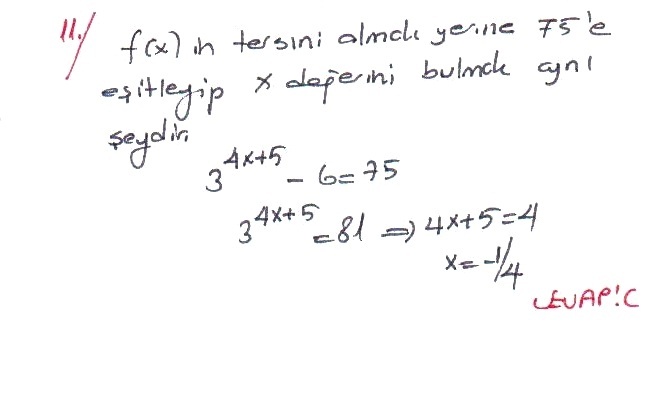 11.) f(x) in tersini almak yerine 75'e
eşitleyip x değerini bulmak aynı
şeydir.
3^{4x+5} - 6 = 75
3^{4x+5} = 81 ⇒ 4x+5=4
x = -1/4
CEVAP:C